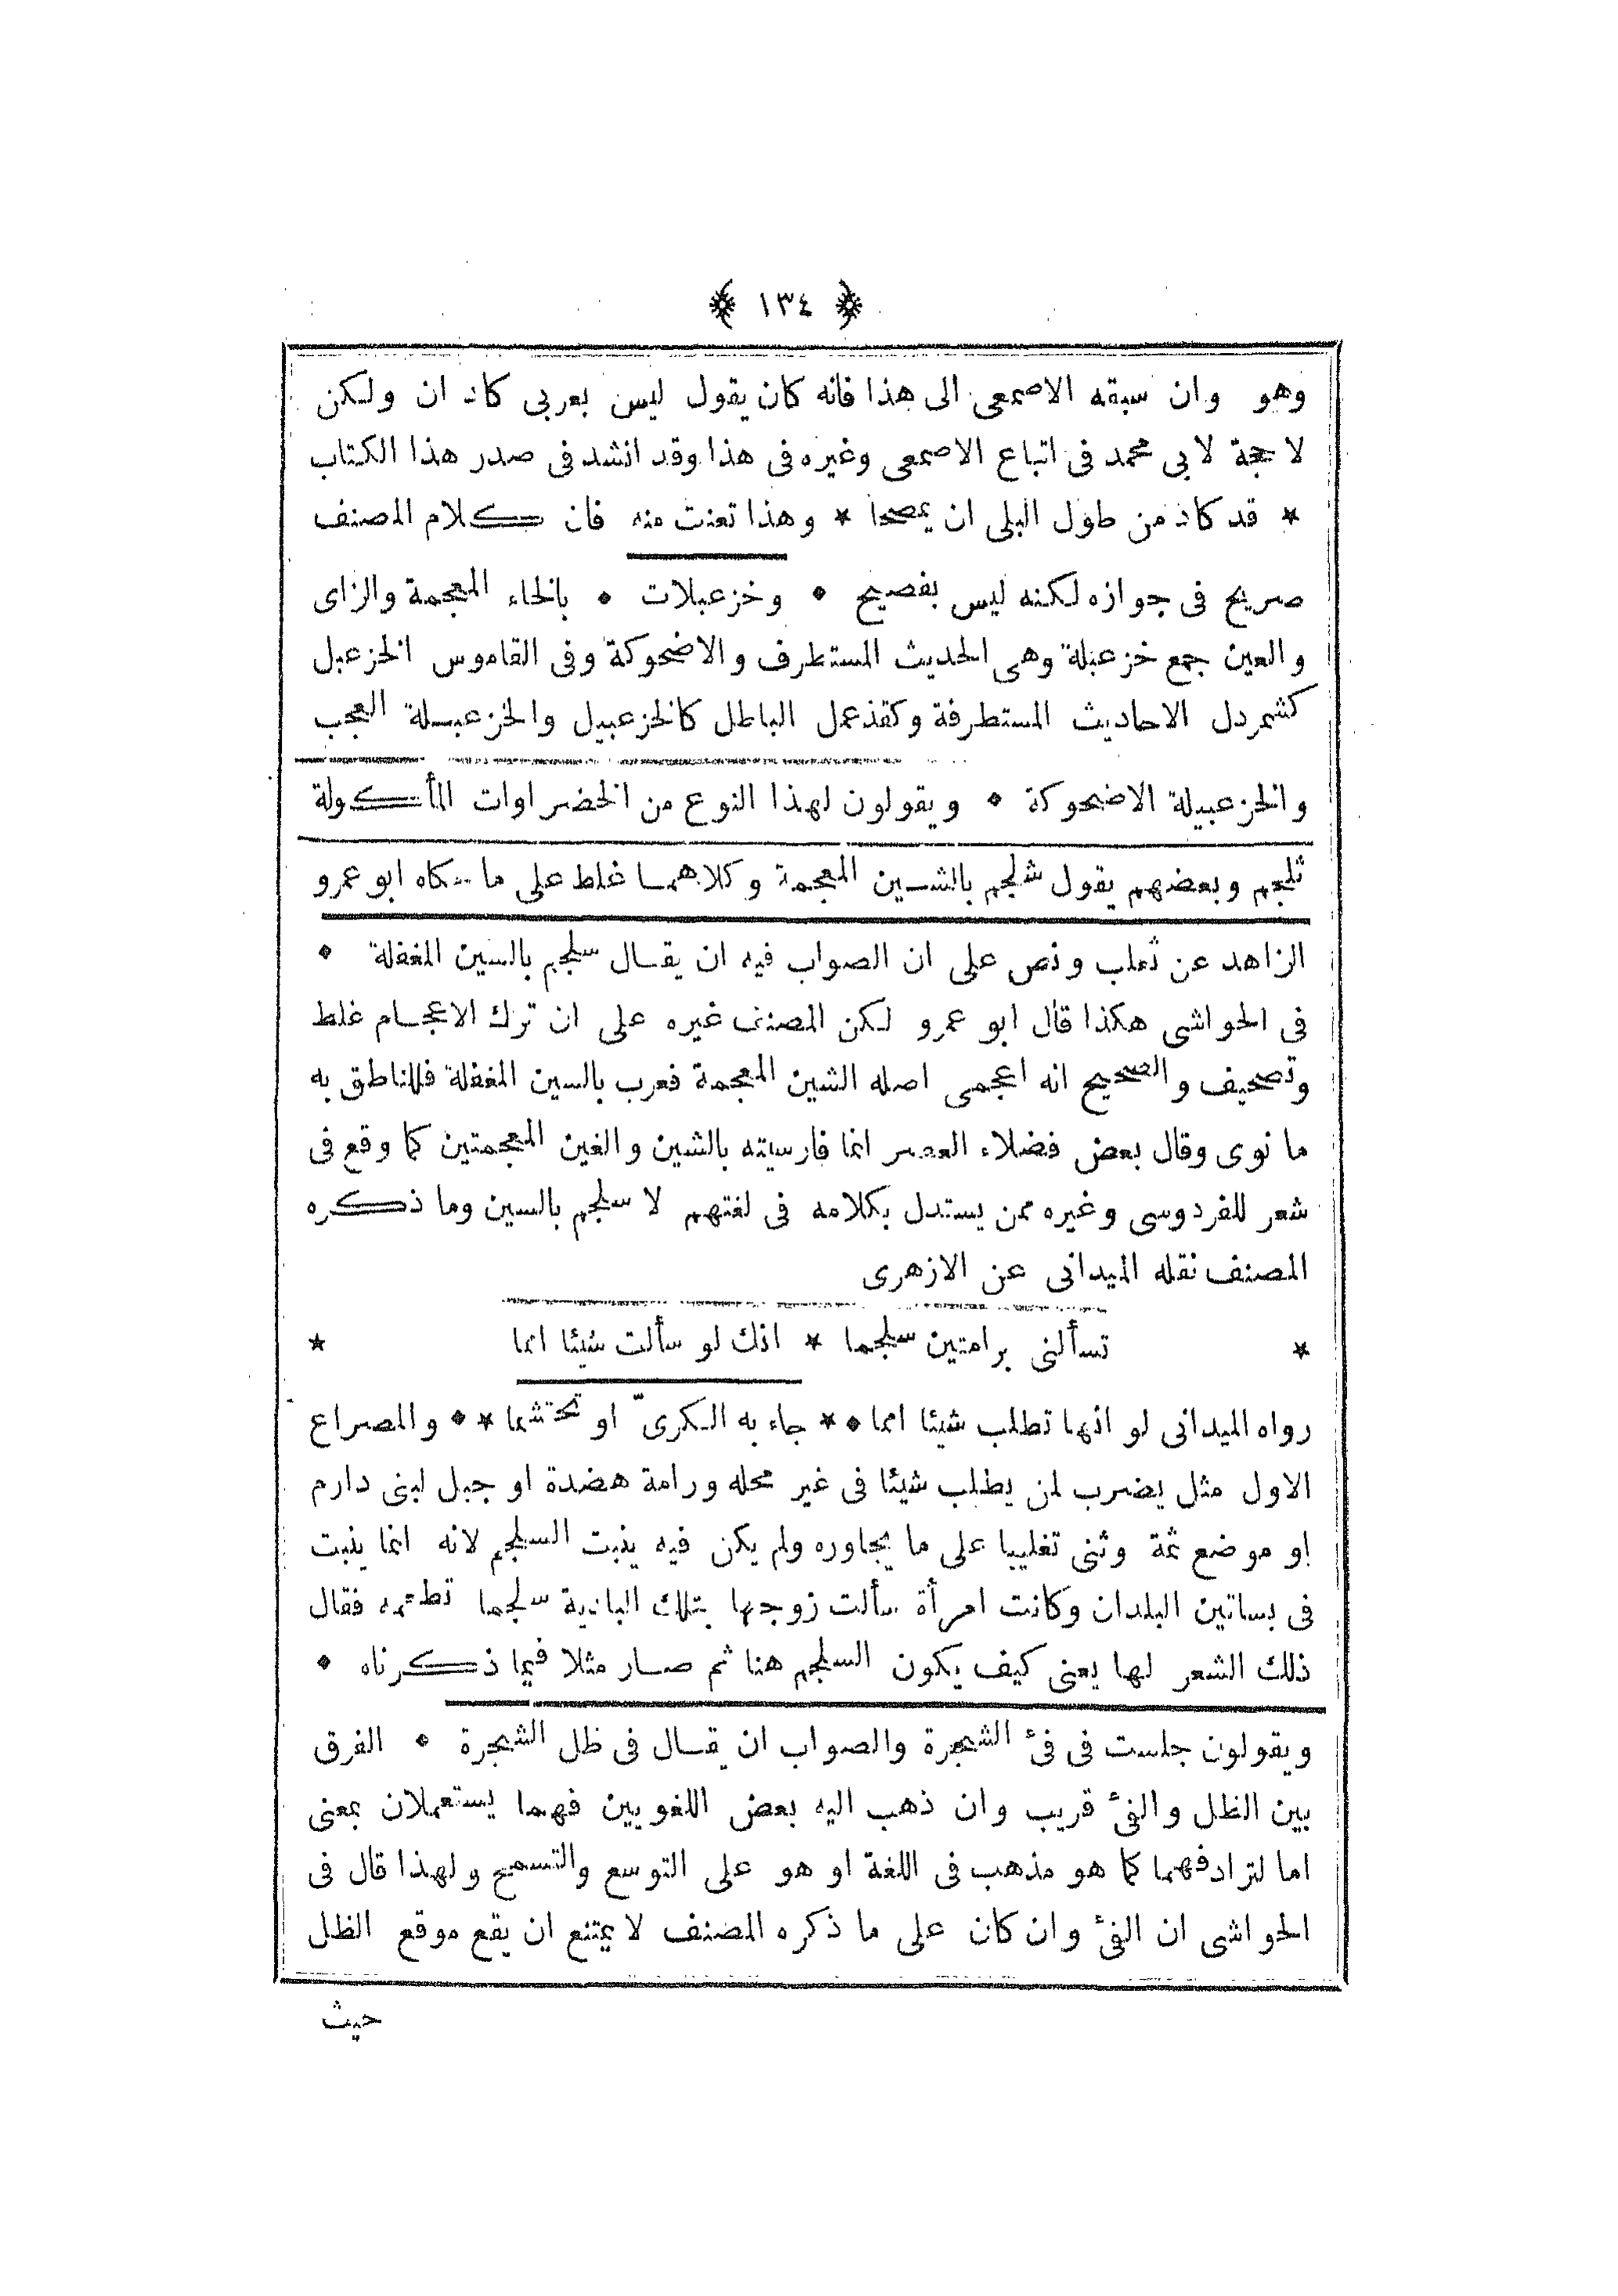 ﴿ ١٣٤ ﴾
وهو وان سبقه الاصمعى الى هذا فانه كان يقول ليس بعربى كاد ان ولكن
لا حجة لابى محمد فى اتباع الاصمعى وغيره فى هذا وقد انشد فى صدر هذا الكتاب
* قد كاد من طول البلى ان يمصحا * وهذا تعنت منه فان كلام المصنف
صريح فى جوازه لكنه ليس بفصيح • وخزعبلات • بالخاء المعجمة والزاى
والعين جمع خزعبلة وهى الحديث المستطرف والاضحوكة وفى القاموس الخزعبل
كشمردل الاحاديث المستطرفة وكقذعمل الباطل كالخزعبيل والخزعبلة العجب
والخزعبيلة الاضحوكة • ويقولون لهذا النوع من الخضراوات المأكولة
ثلجم وبعضهم يقول شلجم بالشين المعجمة وكلاهما غلط على ما حكاه ابو عمرو
الزاهد عن ثعلب ونص على ان الصواب فيه ان يقال سلجم بالسين المغفلة •
فى الحواشى هكذا قال ابو عمرو لكن المصنف غيره على ان ترك الاعجام غلط
وتصحيف والصحيح انه اعجمى اصله الشين المعجمة فعرب بالسين المغفلة فللناطق به
ما نوى وقال بعض فضلاء العصر انما فارسيته بالشين والغين المعجمتين كما وقع فى
شعر للفردوسى وغيره ممن يستدل بكلامه فى لغتهم لا سلجم بالسين وما ذكره
المصنف نقله الميدانى عن الازهرى
* تسألنى برامتين سلجما * انك لو سألت شيئا امما *
رواه الميدانى لو انها تطلب شيئا امما • * جاء به الكرىّ او تحتشما * • والمصراع
الاول مثل يضرب لمن يطلب شيئا فى غير محله ورامة هضدة او جبل لبنى دارم
او موضع ثمة وثنى تغليبا على ما يجاوره ولم يكن فيه ينبت السلجم لانه انما ينبت
فى بساتين البلدان وكانت امرأة سألت زوجها بتلك البادية سلجما تطعمه فقال
ذلك الشعر لها يعنى كيف يكون السلجم هنا ثم صار مثلا فيما ذكرناه •
ويقولون جلست فى فئ الشجرة والصواب ان يقال فى ظل الشجرة • الفرق
بين الظل والفئ قريب وان ذهب اليه بعض اللغويين فهما يستعملان بمعنى
اما لترادفهما كما هو مذهب فى اللغة او هو على التوسع والتسمح ولهذا قال فى
الحواشى ان الفئ وان كان على ما ذكره المصنف لا يمتنع ان يقع موقع الظل
حيث